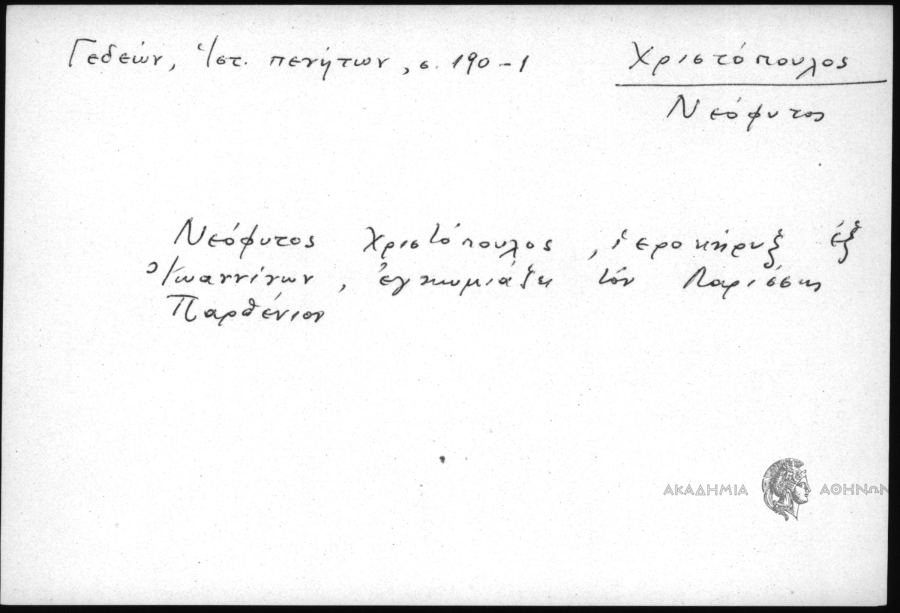 Γεδεών, Ἱστ. πενήτων, σ. 190-1
Χριστόπουλος
Νεόφυτος
Νεόφυτος Χριστόπουλος, ἱεροκήρυξ ἐξ
Ἰωαννίνων, ἐγκωμιάζει τὸν Λαρίσσης
Παρθένιον
ΑΚΑΔΗΜΙΑ ΑΘΗΝΩΝ